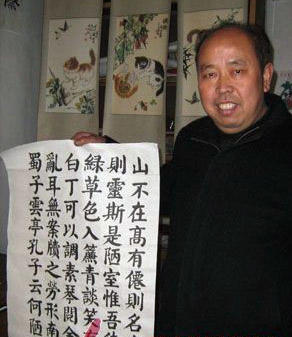 山不在高有僊則名
則靈斯是陋室惟吾
綠草色入簾青談笑
白丁可以調素琴閱金
亂耳無案牘之勞形南
蜀子雲亭孔子云何陋